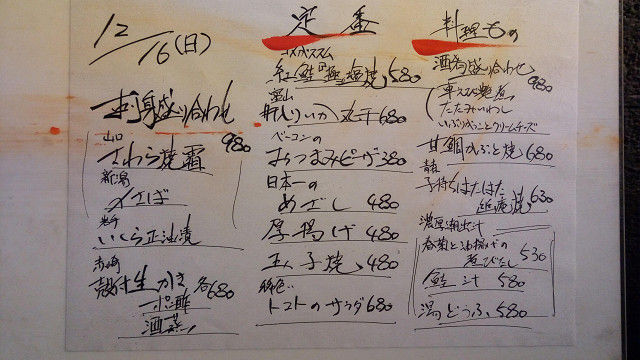 12/16(日)
刺身盛り合わせ
980
山口
さわら焼霜
新潟
〆さば
岩手
いくら正油漬
赤崎
殻付生かき 各680
ポン酢
酒蒸し
定番
コスパススム
紅鮭の極塩焼 580
富山
丸干 680
ベーコンの
おつまみピーザ 380
日本一の
めざし 480
厚揚げ 480
玉子焼 480
トマトのサラダ 680
料理もの
酒肴盛り合わせ
980
たたみいわし
いぶりがっことクリームチーズ
甘鯛かぶと焼 680
青森
子持ちはたはた
塩焼 630
濃厚潮出汁
春菊と油揚げの
煮びたし 530
鮭汁 580
湯どうふ 580